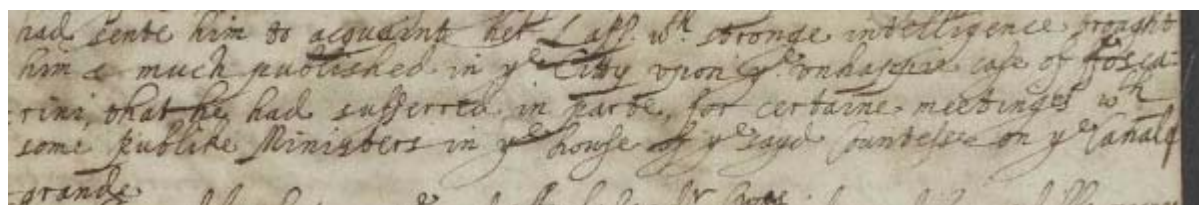 had sente him to acquaint her Lapp. wth stronge intelligence brought
him & much published in ye Citty vpon ye vnhappie case of Fosca-
rini, that he had sufferred in parte, for certaine meetinges wth
some publike Ministers in ye house of ye sayd Countesse on ye Canale
grande